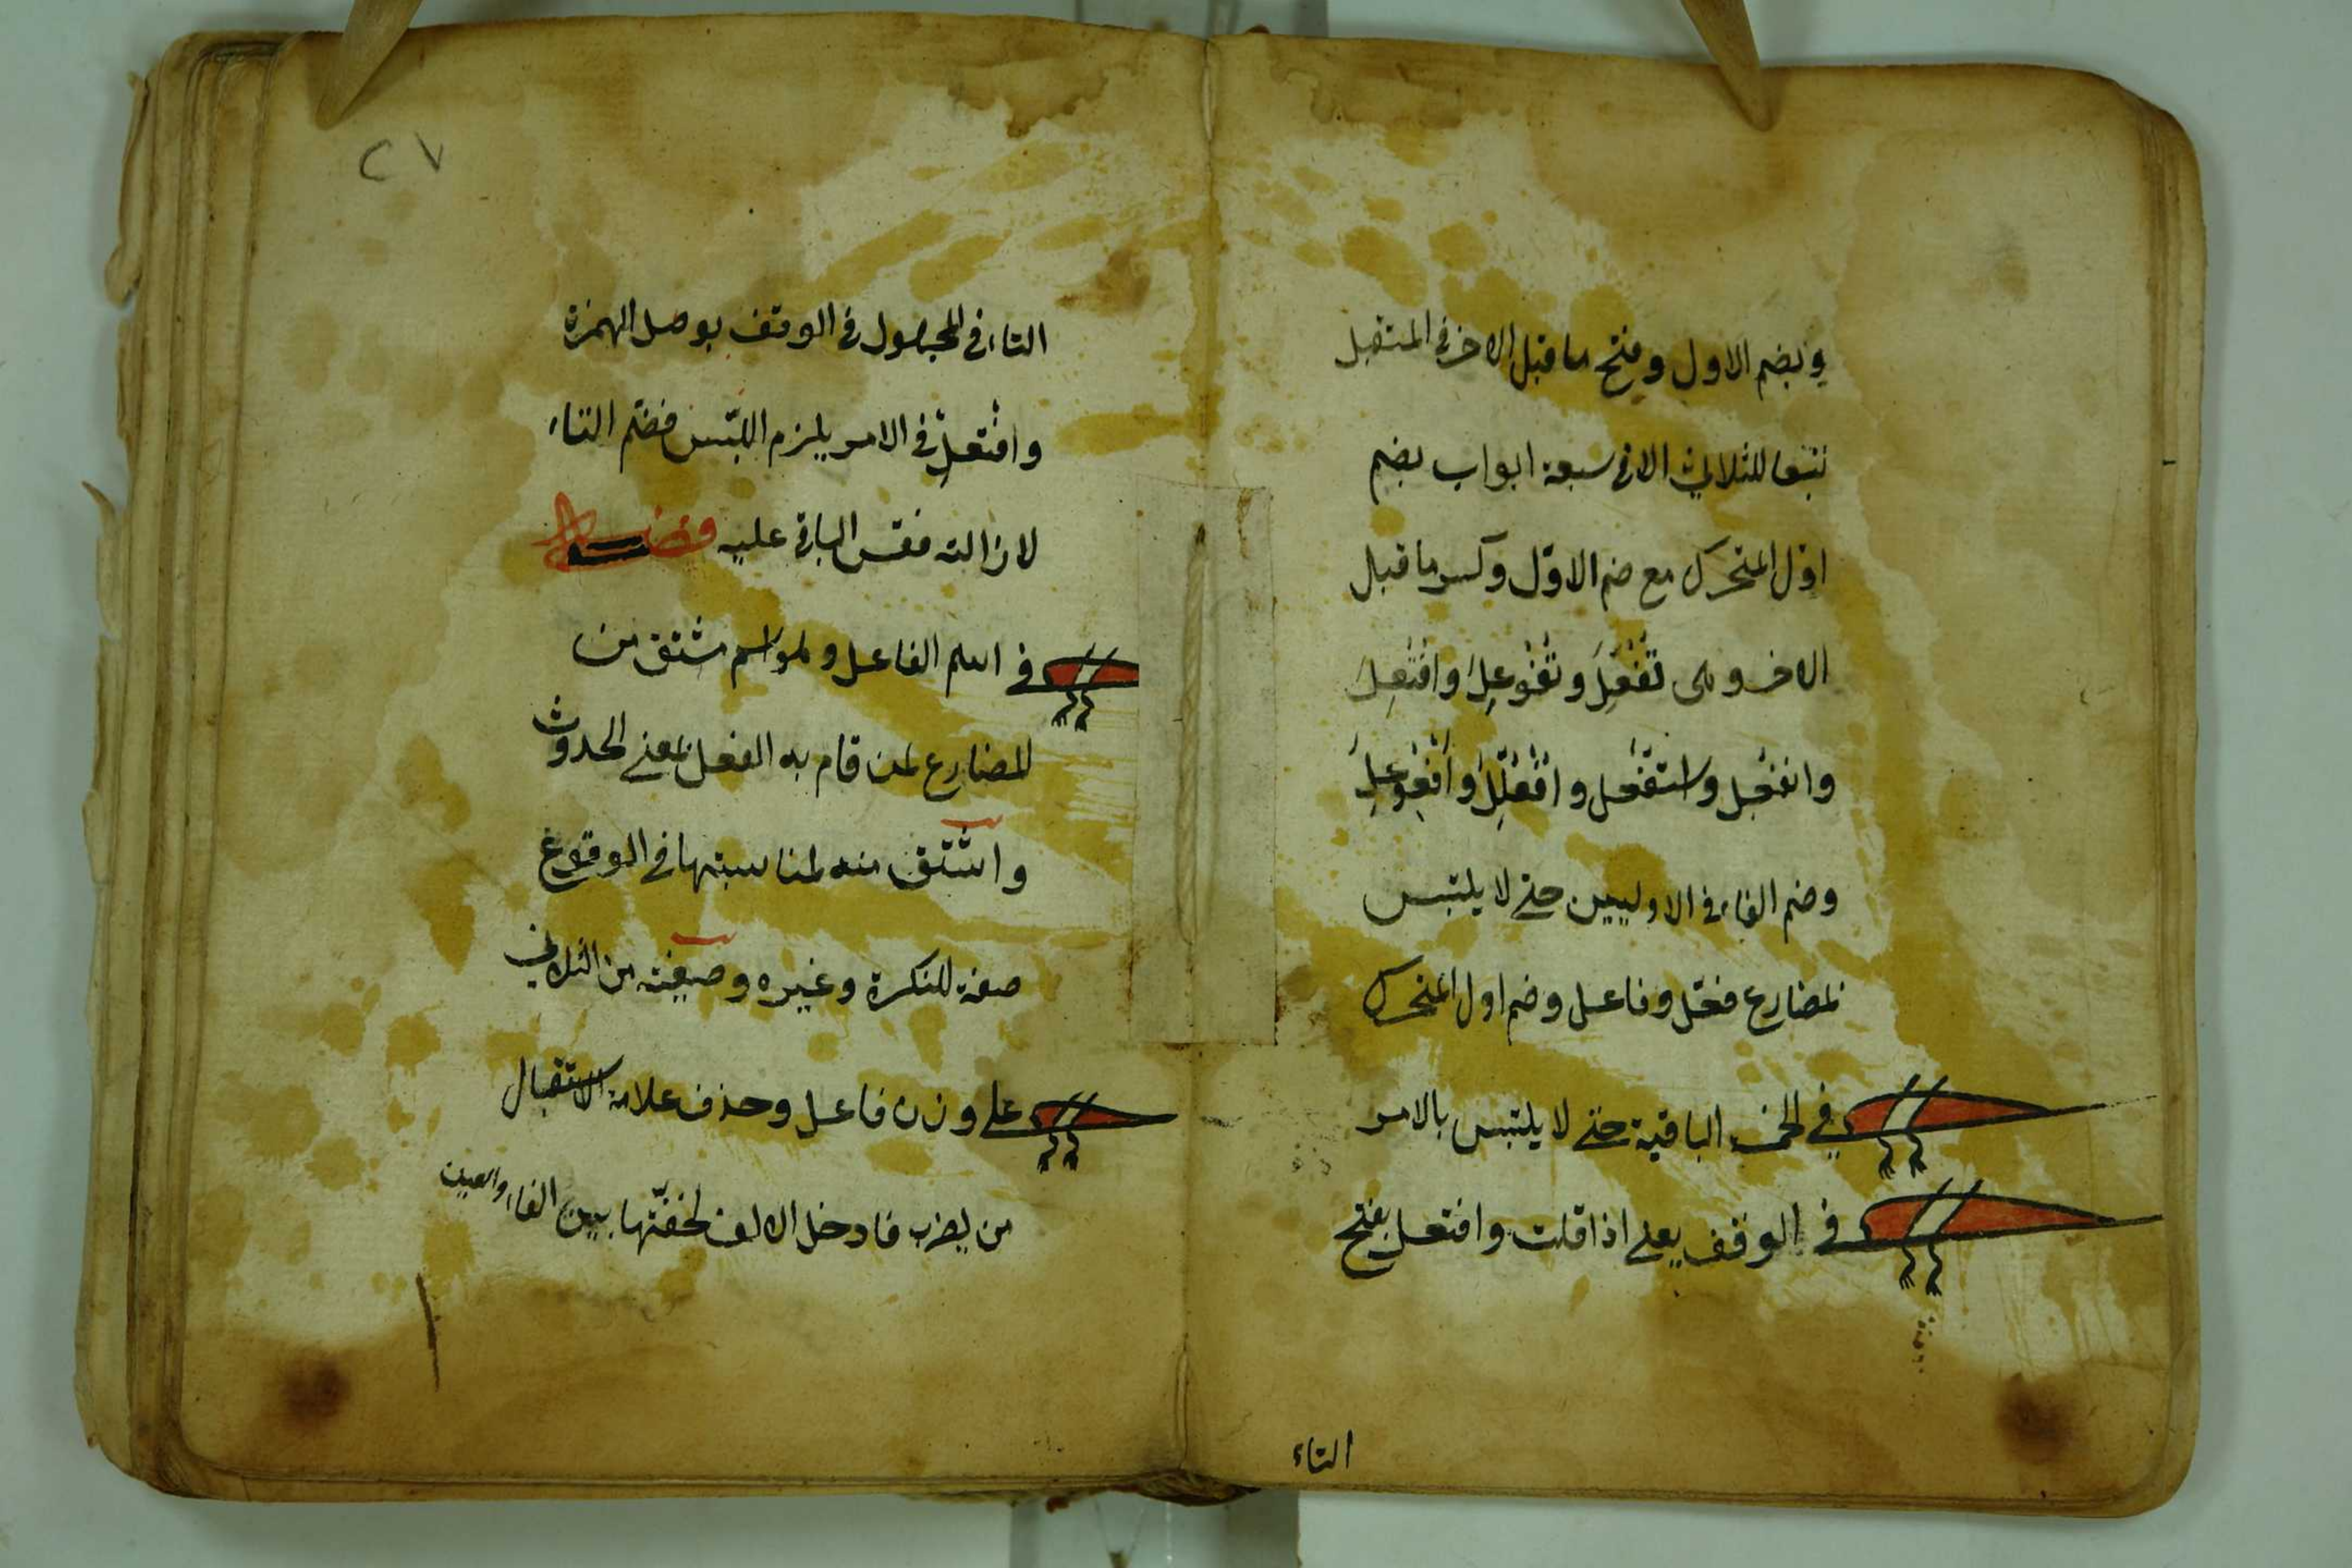 وبضم الاول وفتح ما قبل الاخر في المستقبل
تبعا للثلاثي الا في سبعة ابواب بضم
اوّل المتحرك مع ضم الاوّل وكسر ما قبل
الاخر وهي تُفُعِّلَ وتُفُوعِلَ وافْتُعِلَ
وانفُعِل واستُفْعِل وافْعُلِلَّ وافْعُوعِلَ
وضم الفاء في الاوليين حتى لا يلتبس
بمضارع فعّل وفاعل وضم اول المتحرك
في الخمسة الباقية حتى لا يلتبس بالامر
في الوقف يعني اذا قلت وافتعل بفتح
التاء
٢٧
التاء في المجهول في الوقف بوصل الهمزة
وافْتَعِلْ في الامر يلزم اللبس فضم التاء
لازالته فقس الباقي عليه فصل
في اسم الفاعل وهو اسم مشتق من
المضارع لمن قام به الفعل بمعنى الحدوث
واشتق منه لمناسبتها في الوقوع
صفة للنكرة وغيره وصيغته من الثلاثي
على وزن فاعل وحذف علامة الاستقبال
من يضرب فادخل الالف لخفّتها بين الفاء والعين